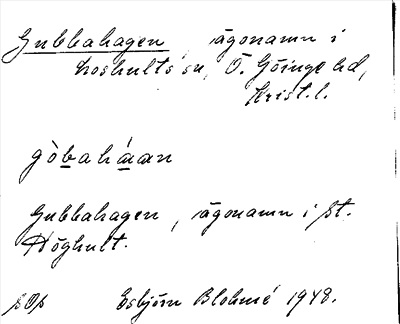 Gubbahagen, ägonamn i
Loshults sn, Ö. Göinge hd,
Krist. l.
gòbaháan
Gubbahagen, ägonamn i St.
Höghult.
Esbjörn Blohmé 1948.